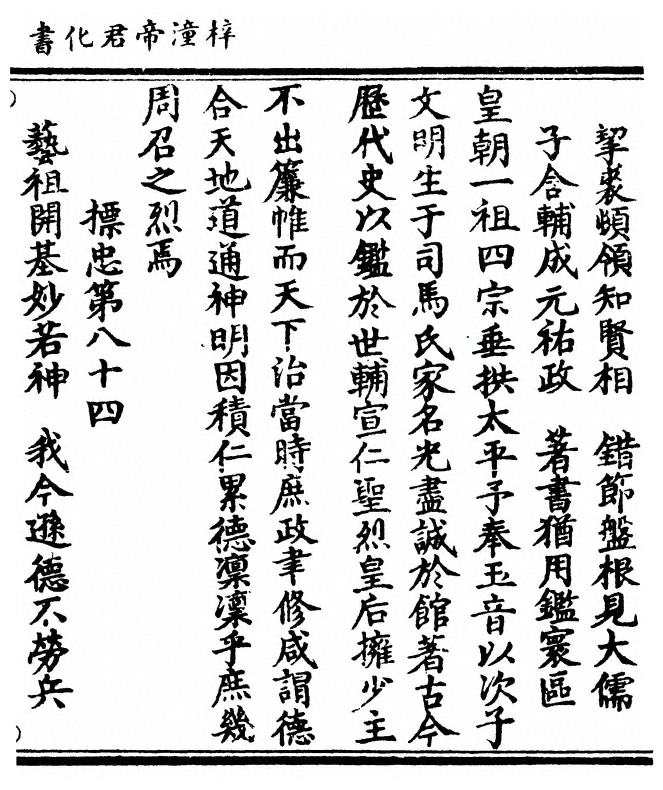 梓潼帝君化書
挈裘頓領知賢相　錯節盤根見大儒
子合輔成元祐政　著書猶用鑑寰區
皇朝一祖四宗垂拱太平予奉玉音以次子
文明生于司馬氏家名光盡誠於館著古今
歷代史以鑑於世輔宣仁聖烈皇后擁少主
不出簾帷而天下治當時庶政聿修咸謂德
合天地道通神明因積仁累德凜凜乎庶幾
周召之烈焉
摽忠第八十四
藝祖開基妙若神　我今遜德不勞兵